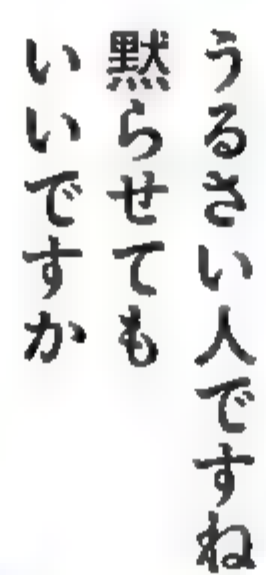 うるさい人ですね
黙らせても
いいですか